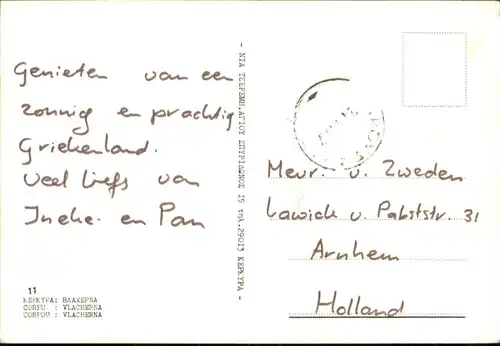 Genieten van een
zonnig en prachtig
Griekenland.
Veel liefs van
Ineke en Pan
11
ΚΕΡΚΥΡΑ: ΒΛΑΧΕΡΝΑ
CORFU : VLACHERNA
CORFOU : VLACHERNA
15 τηλ.:29013 ΚΕΡΚΥΡΑ -
Mevr. v. Zweden
Lawick v. Pabststr. 31
Arnhem
Holland